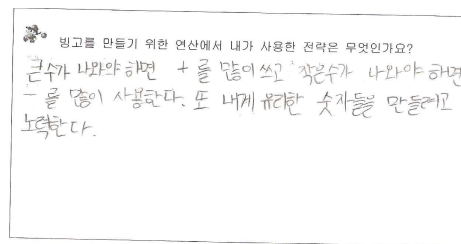 빙고를 만들기 위한 연산에서 내가 사용한 전략은 무엇인가요?
큰수가 나와야 하면 + 를 많이쓰고 작은수가 나와야 하면
- 를 많이 사용한다. 또 내게 유리한 숫자들을 만들려고
노력한다.